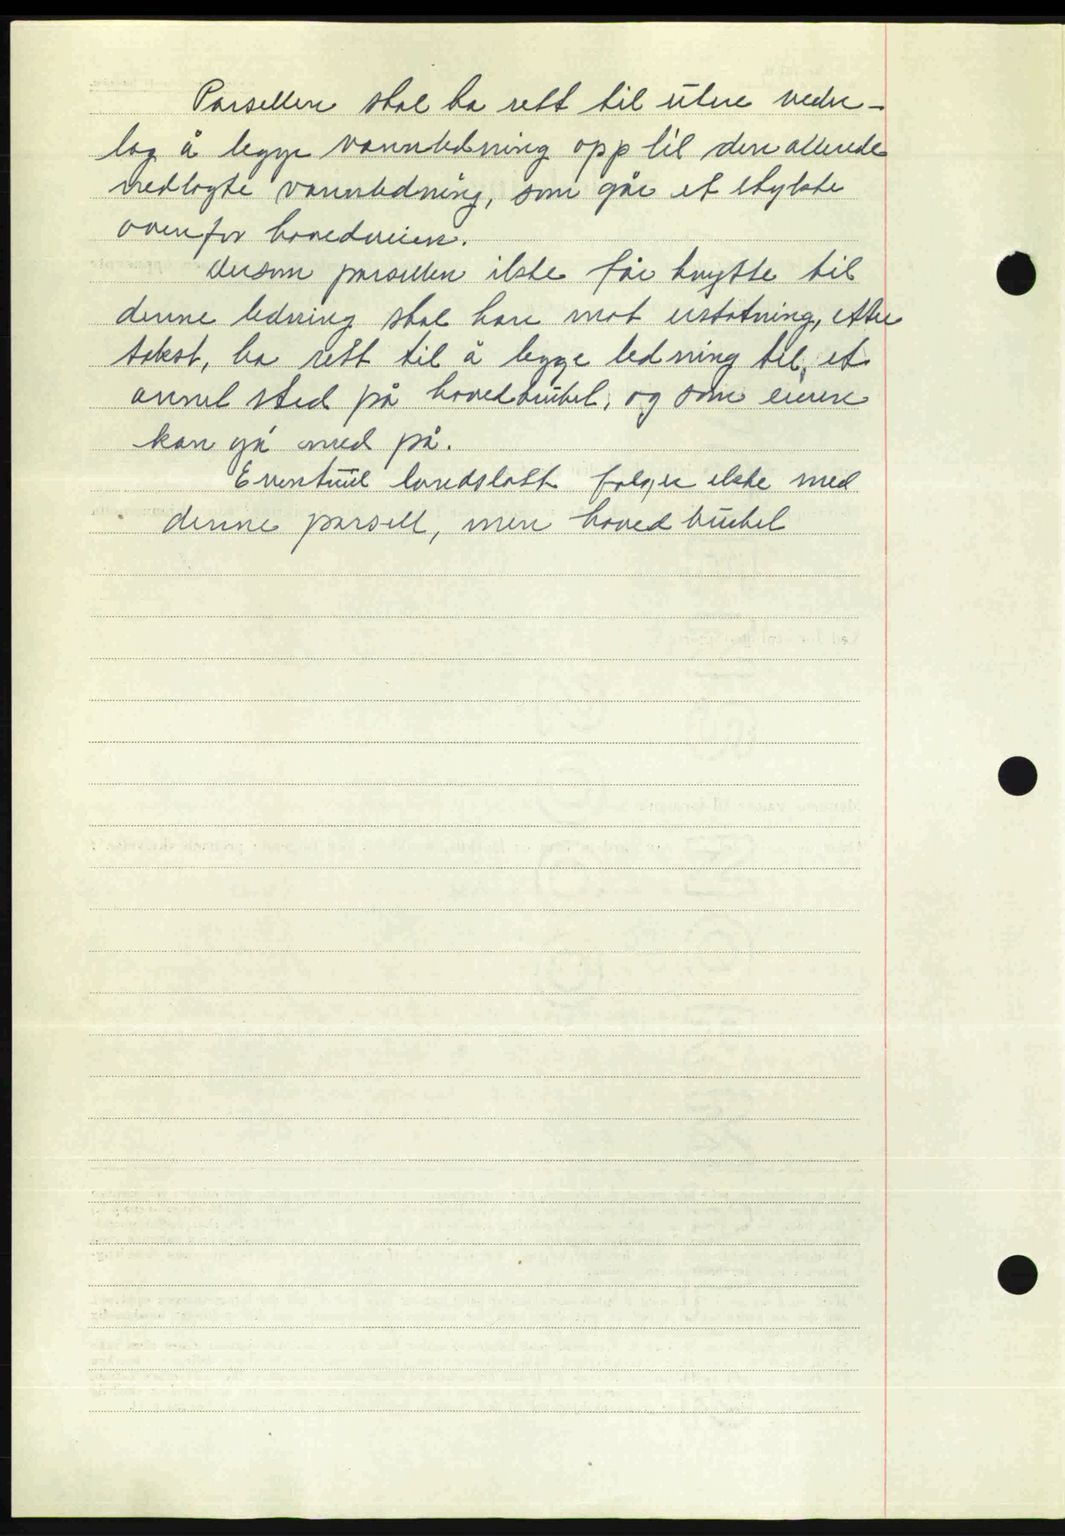 Parsellen skal ha rett til uten veder-
lag å legge vannledning opp til den allerede
nedlagte vannledning, som går et stykke
ovenfor hovedveien.
Dersom parsellen ikke får knytte til
denne ledning skal han mot erstatning, etter
takst, ha rett til å legge ledning til et
annet sted på hovedbruket, og som eieren
kan gå med på.
Eventuel landslott følger ikke med
denne parsell, men hovedbruket